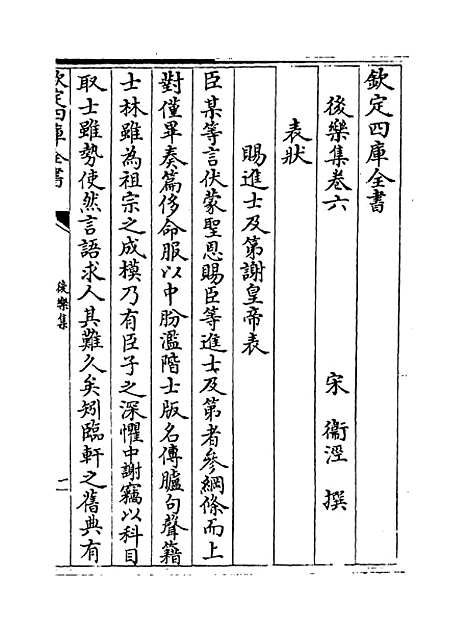 欽定四庫全書
後樂集卷六
宋 衞涇 撰
表狀
賜進士及第謝皇帝表
臣某等言伏蒙聖恩賜臣等進士及第者參綱條而上
對僅畢奏篇侈命服以中朌濫階士版名傳臚句聲籍
士林雖為祖宗之成模乃有臣子之深懼中謝竊以科目
取士雖勢使然言語求人其難久矣矧臨軒之舊典有
欽定四庫全書
後樂集